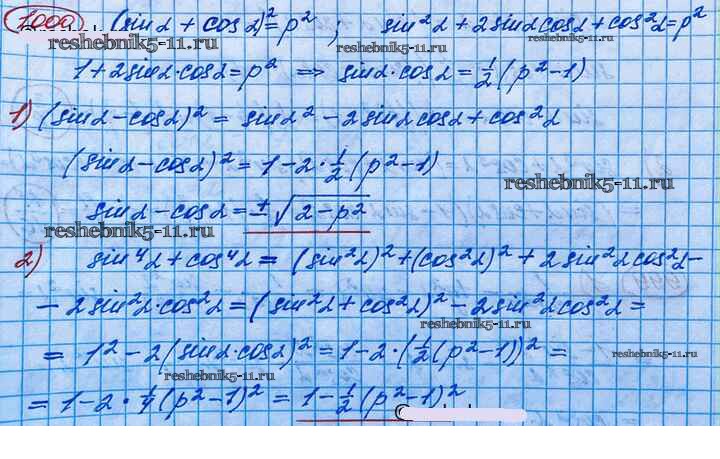 1000. (sinα + cosα)² = p² ; sin²α + 2sinαcosα + cos²α = p²
reshebnik5-11.ru reshebnik5-11.ru
1 + 2sinα·cosα = p² ⇒ sinα·cosα = 1/2 (p² – 1)
1) (sinα – cosα)² = sinα² – 2sinαcosα + cos²α
(sinα – cosα)² = 1 – 2·1/2 (p² – 1)
reshebnik5-11.ru reshebnik5-11.ru
sinα – cosα = ±√(2 – p²)
reshebnik5-11.ru
2) sin⁴α + cos⁴α = (sin²α)² + (cos²α)² + 2sin²αcos²α –
– 2sin²α·cos²α = (sin²α + cos²α)² – 2sin²αcos²α =
reshebnik5-11.ru
= 1² – 2(sinα·cosα)² = 1 – 2·(1/2(p² – 1))² =
reshebnik5-11.ru
reshebnik5-11.ru
= 1 – 2·1/4 (p² – 1)² = 1 – 1/2 (p² – 1)²